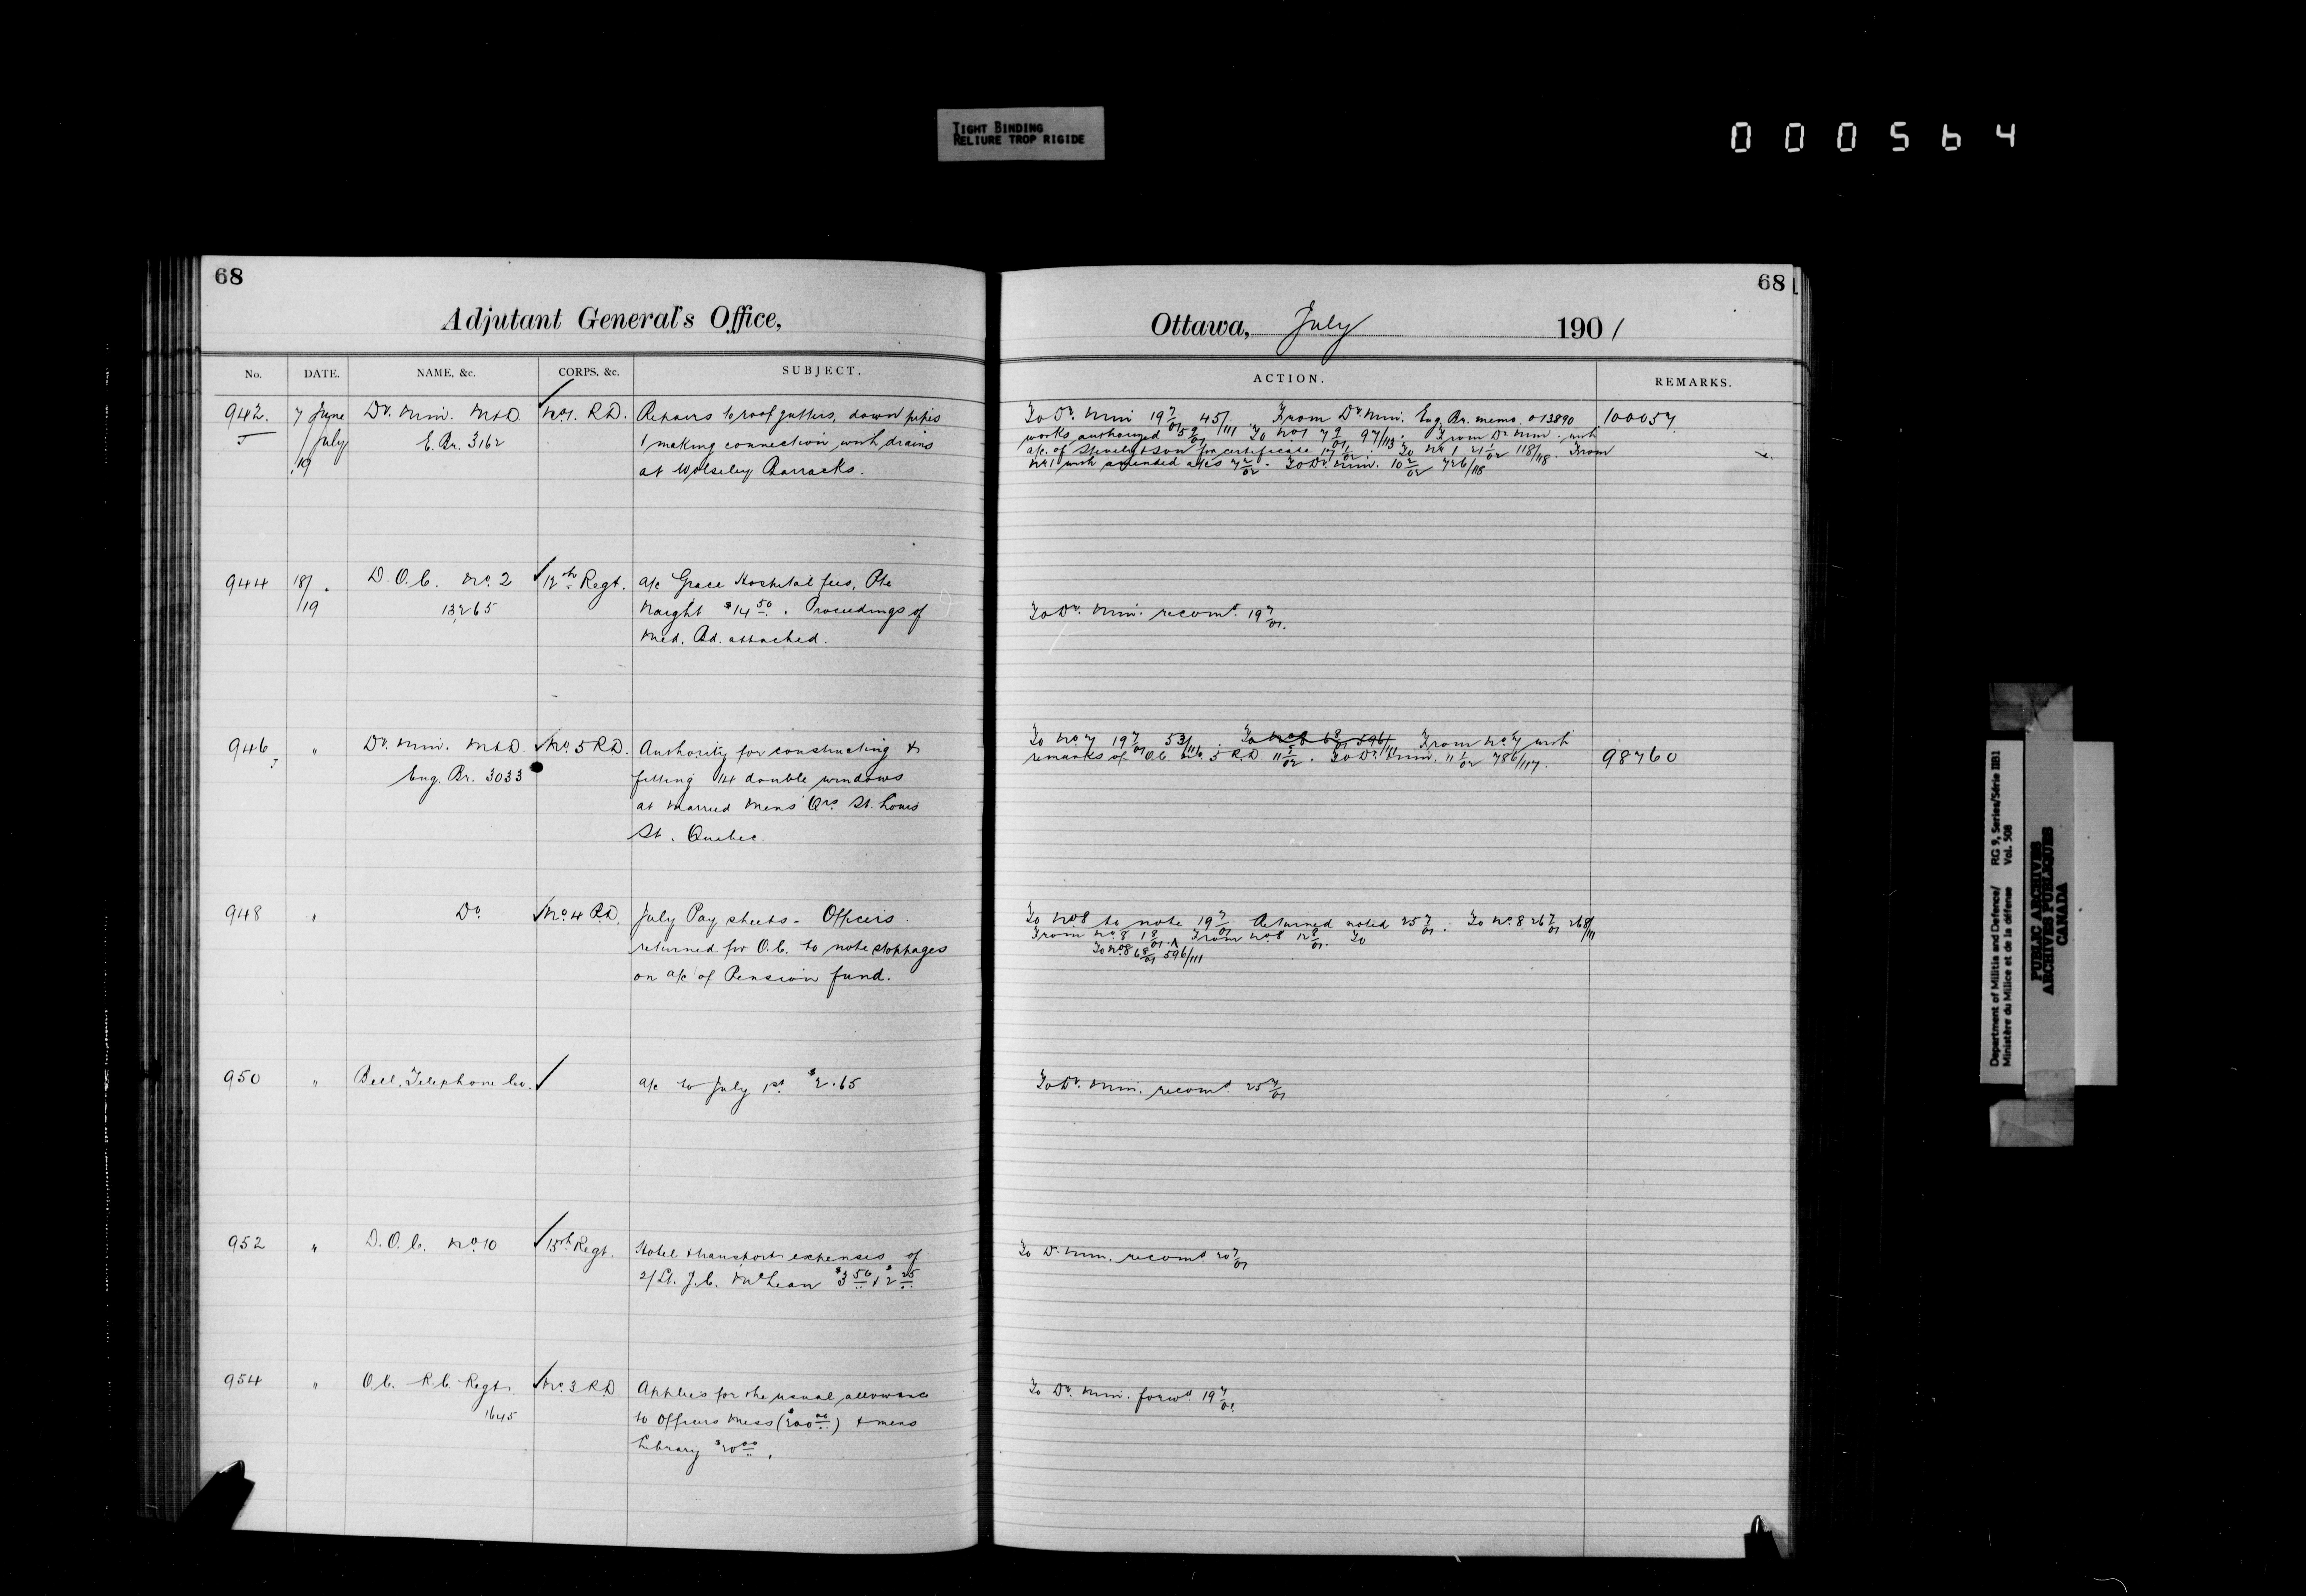 TIGHT BINDING
RELIURE TROP RIGIDE
000564
68
Adjutant General's Office,
No. DATE. NAME, &c. CORPS, &c. SUBJECT.
942. 7 June Dy. Min. M&D. No 1. R.D. Repairs to roof gutters, down pipes
/July E. Br. 3162 & making connection with drains
19 at Wolseley Barracks.
944 18/ D.O.C. No. 2 12th Regt. a/c Grace Hospital fees, Pte
/19 13265 Haight $14 50. Proceedings of
Med. Bd. attached.
946 " Dy. Min. M&D. No. 5 R.D. Authority for constructing &
Eng. Br. 3033 fitting 14 double windows
at Married Mens' Qrs. St. Louis
St. Quebec.
948 " Do No. 4 R.D. July Pay sheets - Officers.
returned for O.C. to note stoppages
on a/c of Pension fund.
950 " Bell Telephone Co. a/c to July 1st. $2.65
952 " D.O.C. No. 10 15th Regt. Hotel & transport expenses of
2/Lt. J.C. McLean $3 50 & $2 25
954 " O.C. R.C. Regt. No. 3 R.D. Applies for the usual allowance
1645 to Officers Mess ($200 00) & mens
Library $20 00.
68
Ottawa, July 1901
ACTION. REMARKS.
To Dy. Min 19 7/01 45/111. From Dy. Min. Eng. Br. memo. 013890 100057
works authorized 5 9/01. To No 1 7 9/01 97/113. From Dy Min. with
a/c. of & Son for certificate 17 1/02. To No 1 21 1/02 118/118. From
No 1 with amended a/cs 7 2/02. To Dy Min. 10 2/02 726/118
To Dy. Min. recomd. 19 7/01.
To No. 7 19 7/01 53/111. To No 8 6 8/01 596/111 From No. 7 with
remarks of O.C. No. 5 R.D. To Dy. Min. 11 1/02 786/117. 98760
To No 8 to note 19 7/01 Returned noted 25 7/01. To No. 8 26 7/01 268/111
From No. 8 1 8/01. From No. 8 12 8/01. To
To No. 8 6 8/01 596/111
To Dy. Min. recomd. 25 7/01
To Dy. Min. recomd 20 7/01
To Dy. Min. forwd. 19 7/01
Department of Militia and Defence/ RG 9, Series/Série IIB1
Ministère du Milice et de la défense Vol. 508
PUBLIC ARCHIVES
ARCHIVES PUBLIQUES
CANADA